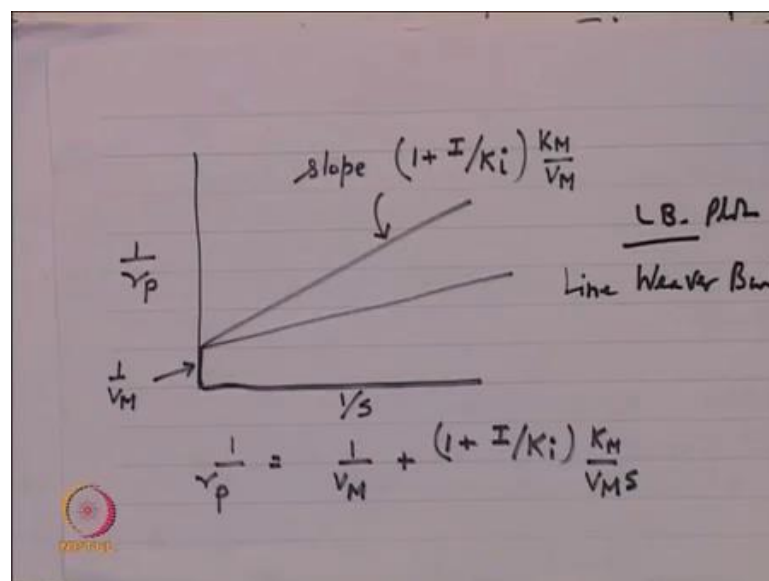 slope (1 + I/Ki) KM/VM
L B. Plot
Line Weaver
1/rp
1/VM
1/S
1/rp = 1/VM + (1 + I/Ki) KM/VM S
NPTEL